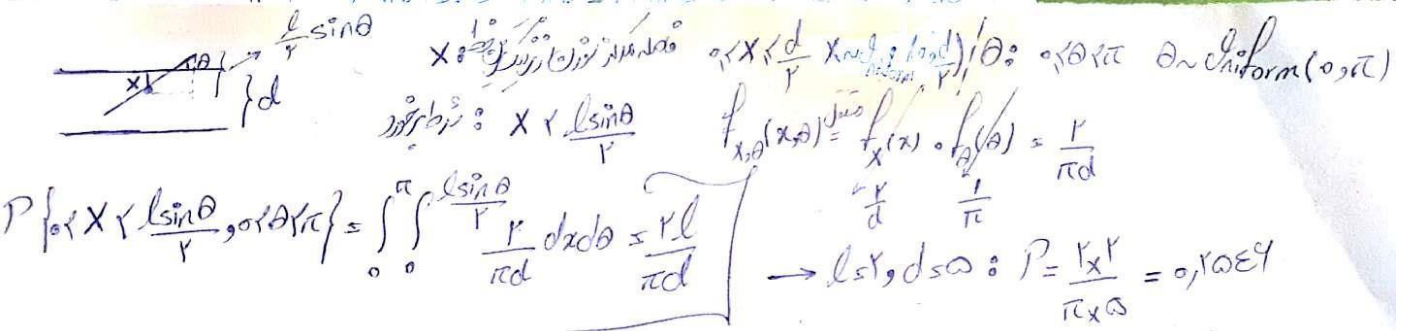 l/۲ sinθ
X: فاصله مرکز سوزن تا نزدیکترین خط ۰<X<d/۲ X~Uniform(۰,d/۲) , θ: ۰<θ<π θ~Uniform(۰,π)
X θ d
شرط برخورد: X < lsinθ/۲ f_{X,θ}(x,θ) مستقل = f_X(x) . f_θ(θ) = ۲/πd
۲/d ۱/π
P{۰<X<lsinθ/۲, ۰<θ<π} = ∫_۰^π ∫_۰^{lsinθ/۲} ۲/πd dxdθ = ۲l/πd
→ l=۲, d=۵ : P = ۲×۲/π×۵ = ۰,۲۵۴۶